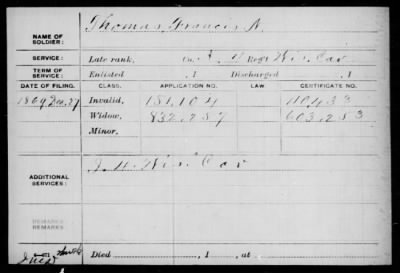 NAME OF SOLDIER: Thomas, Francis N.
SERVICE: Late rank, Co. Reg't Wis. Cav
TERM OF SERVICE: Enlisted , 1 Discharged , 1
DATE OF FILING. CLASS. APPLICATION NO. LAW CERTIFICATE NO.
1869 Dec. 27 Invalid, 151,104 110,433
Widow, 832,257 603,253
Minor.
ADDITIONAL SERVICES: Wis. Cav
REMARKS
REMARKS:
Died , 1 , at